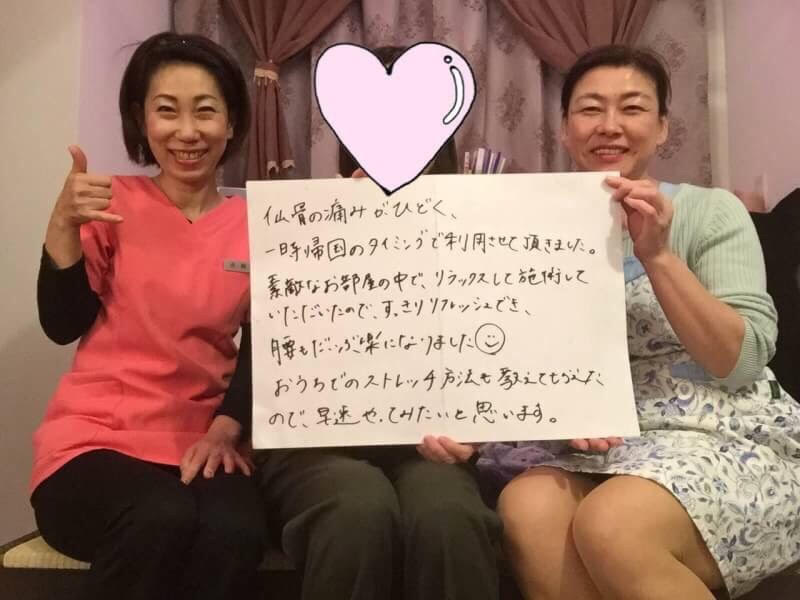 仙骨の痛みがひどく、
一時帰国のタイミングで利用させて頂きました。
素敵なお部屋の中で、リラックスして施術して
いただいたので、すっきりリフレッシュでき、
腰もだいぶ楽になりました
おうちでのストレッチ方法も教えてもらえた
ので、早速やってみたいと思います。